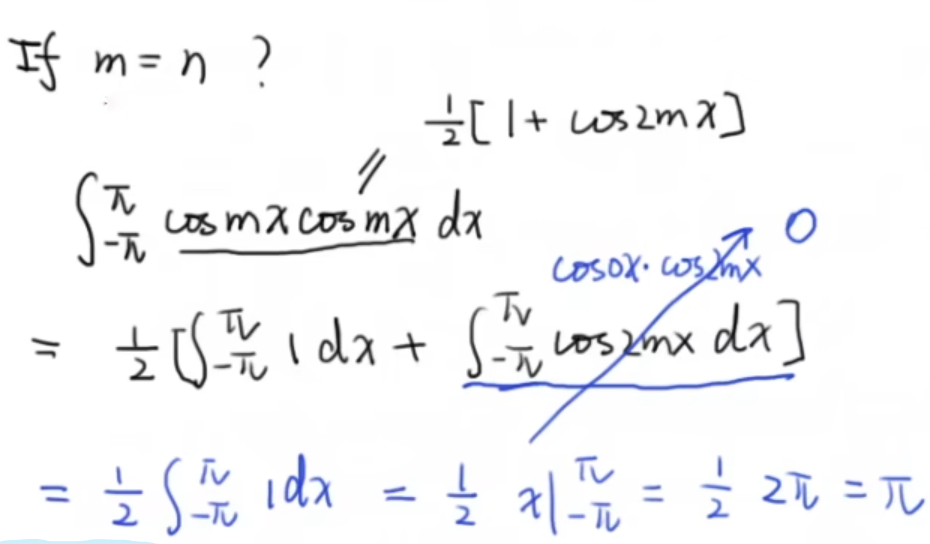 If m = n ?
½[1 + cos2mx]
∫_{-π}^{π} cosmx cosmx dx
cos0x· cos2mx 0
= ½[∫_{-π}^{π} 1 dx + ∫_{-π}^{π} cos2mx dx]
= ½ ∫_{-π}^{π} 1dx = ½ x|_{-π}^{π} = ½ 2π = π